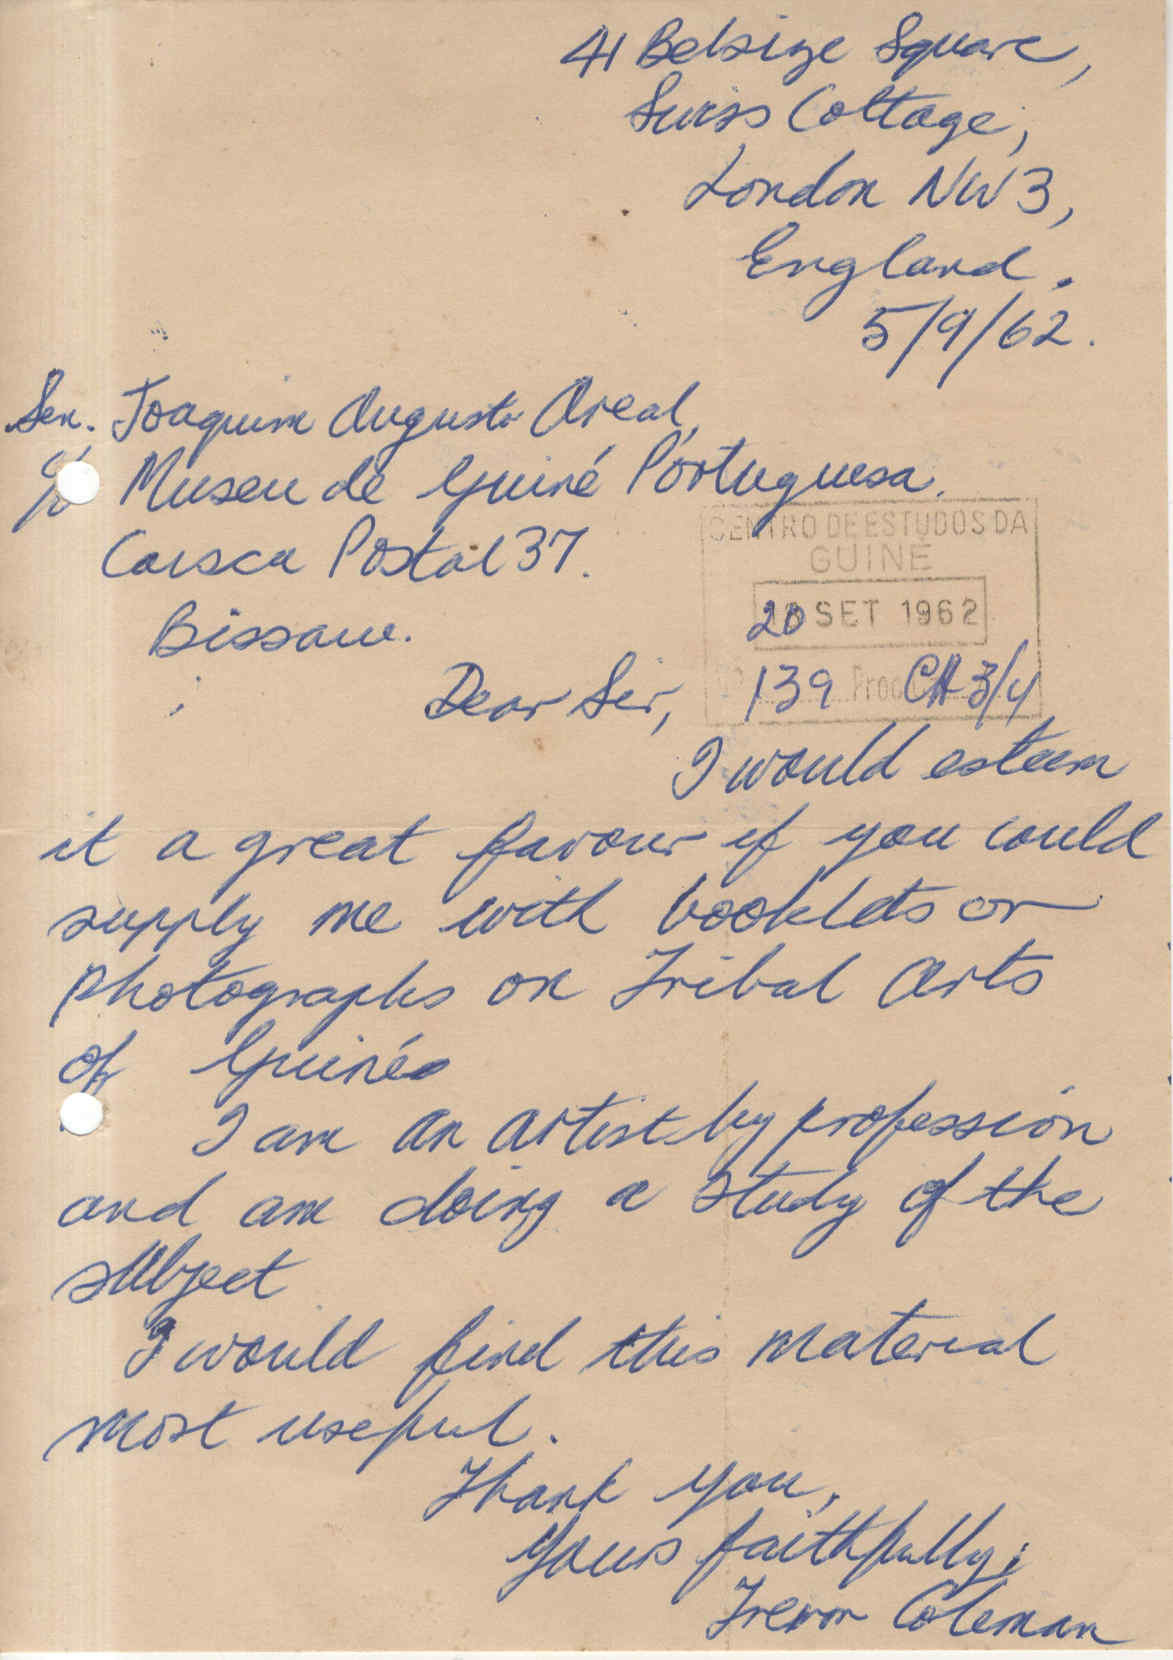 41 Belsize Square,
Swiss Cottage,
London NW3,
England.
5/9/62.
Sen. Joaquim Augusto Areal,
c/o Museu de Guiné Portuguesa.
Caisca Postal 37.
Bissau.
CENTRO DE ESTUDOS DA
GUINÉ
20 SET 1962
139 Proc. CA 3/4
Dear Sir,
I would esteem
it a great favour if you could
supply me with booklets or
photographs on Tribal Arts
of Guinée
I am an artist by profession
and am doing a study of the
subject
I would find this material
most useful.
Thank you,
Yours faithfully;
Trevor Coleman